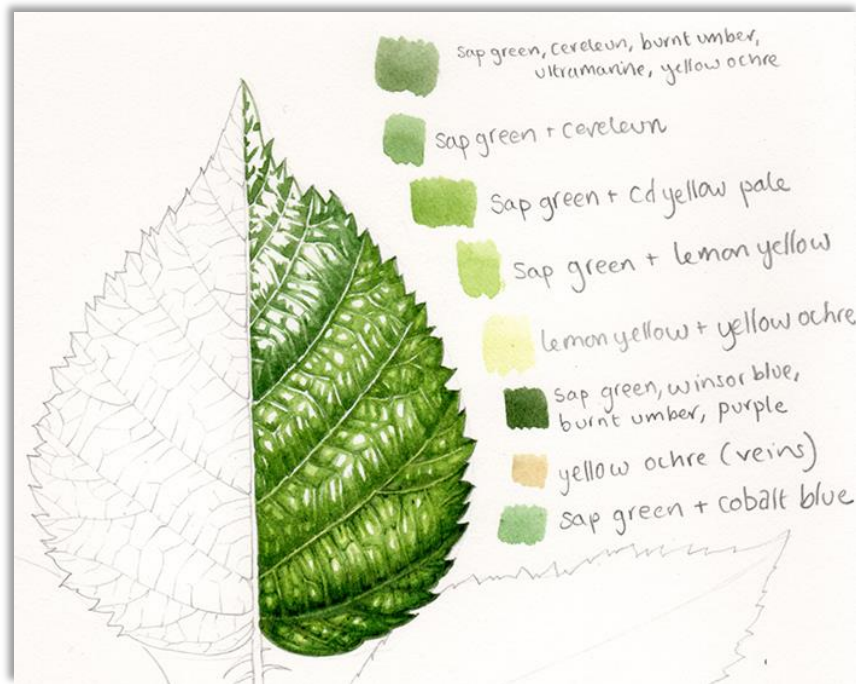 sap green, cereleun, burnt umber,
ultramarine, yellow ochre
sap green + cereleun
sap green + cd yellow pale
sap green + lemon yellow
lemon yellow + yellow ochre
sap green, winsor blue,
burnt umber, purple
yellow ochre (veins)
sap green + cobalt blue